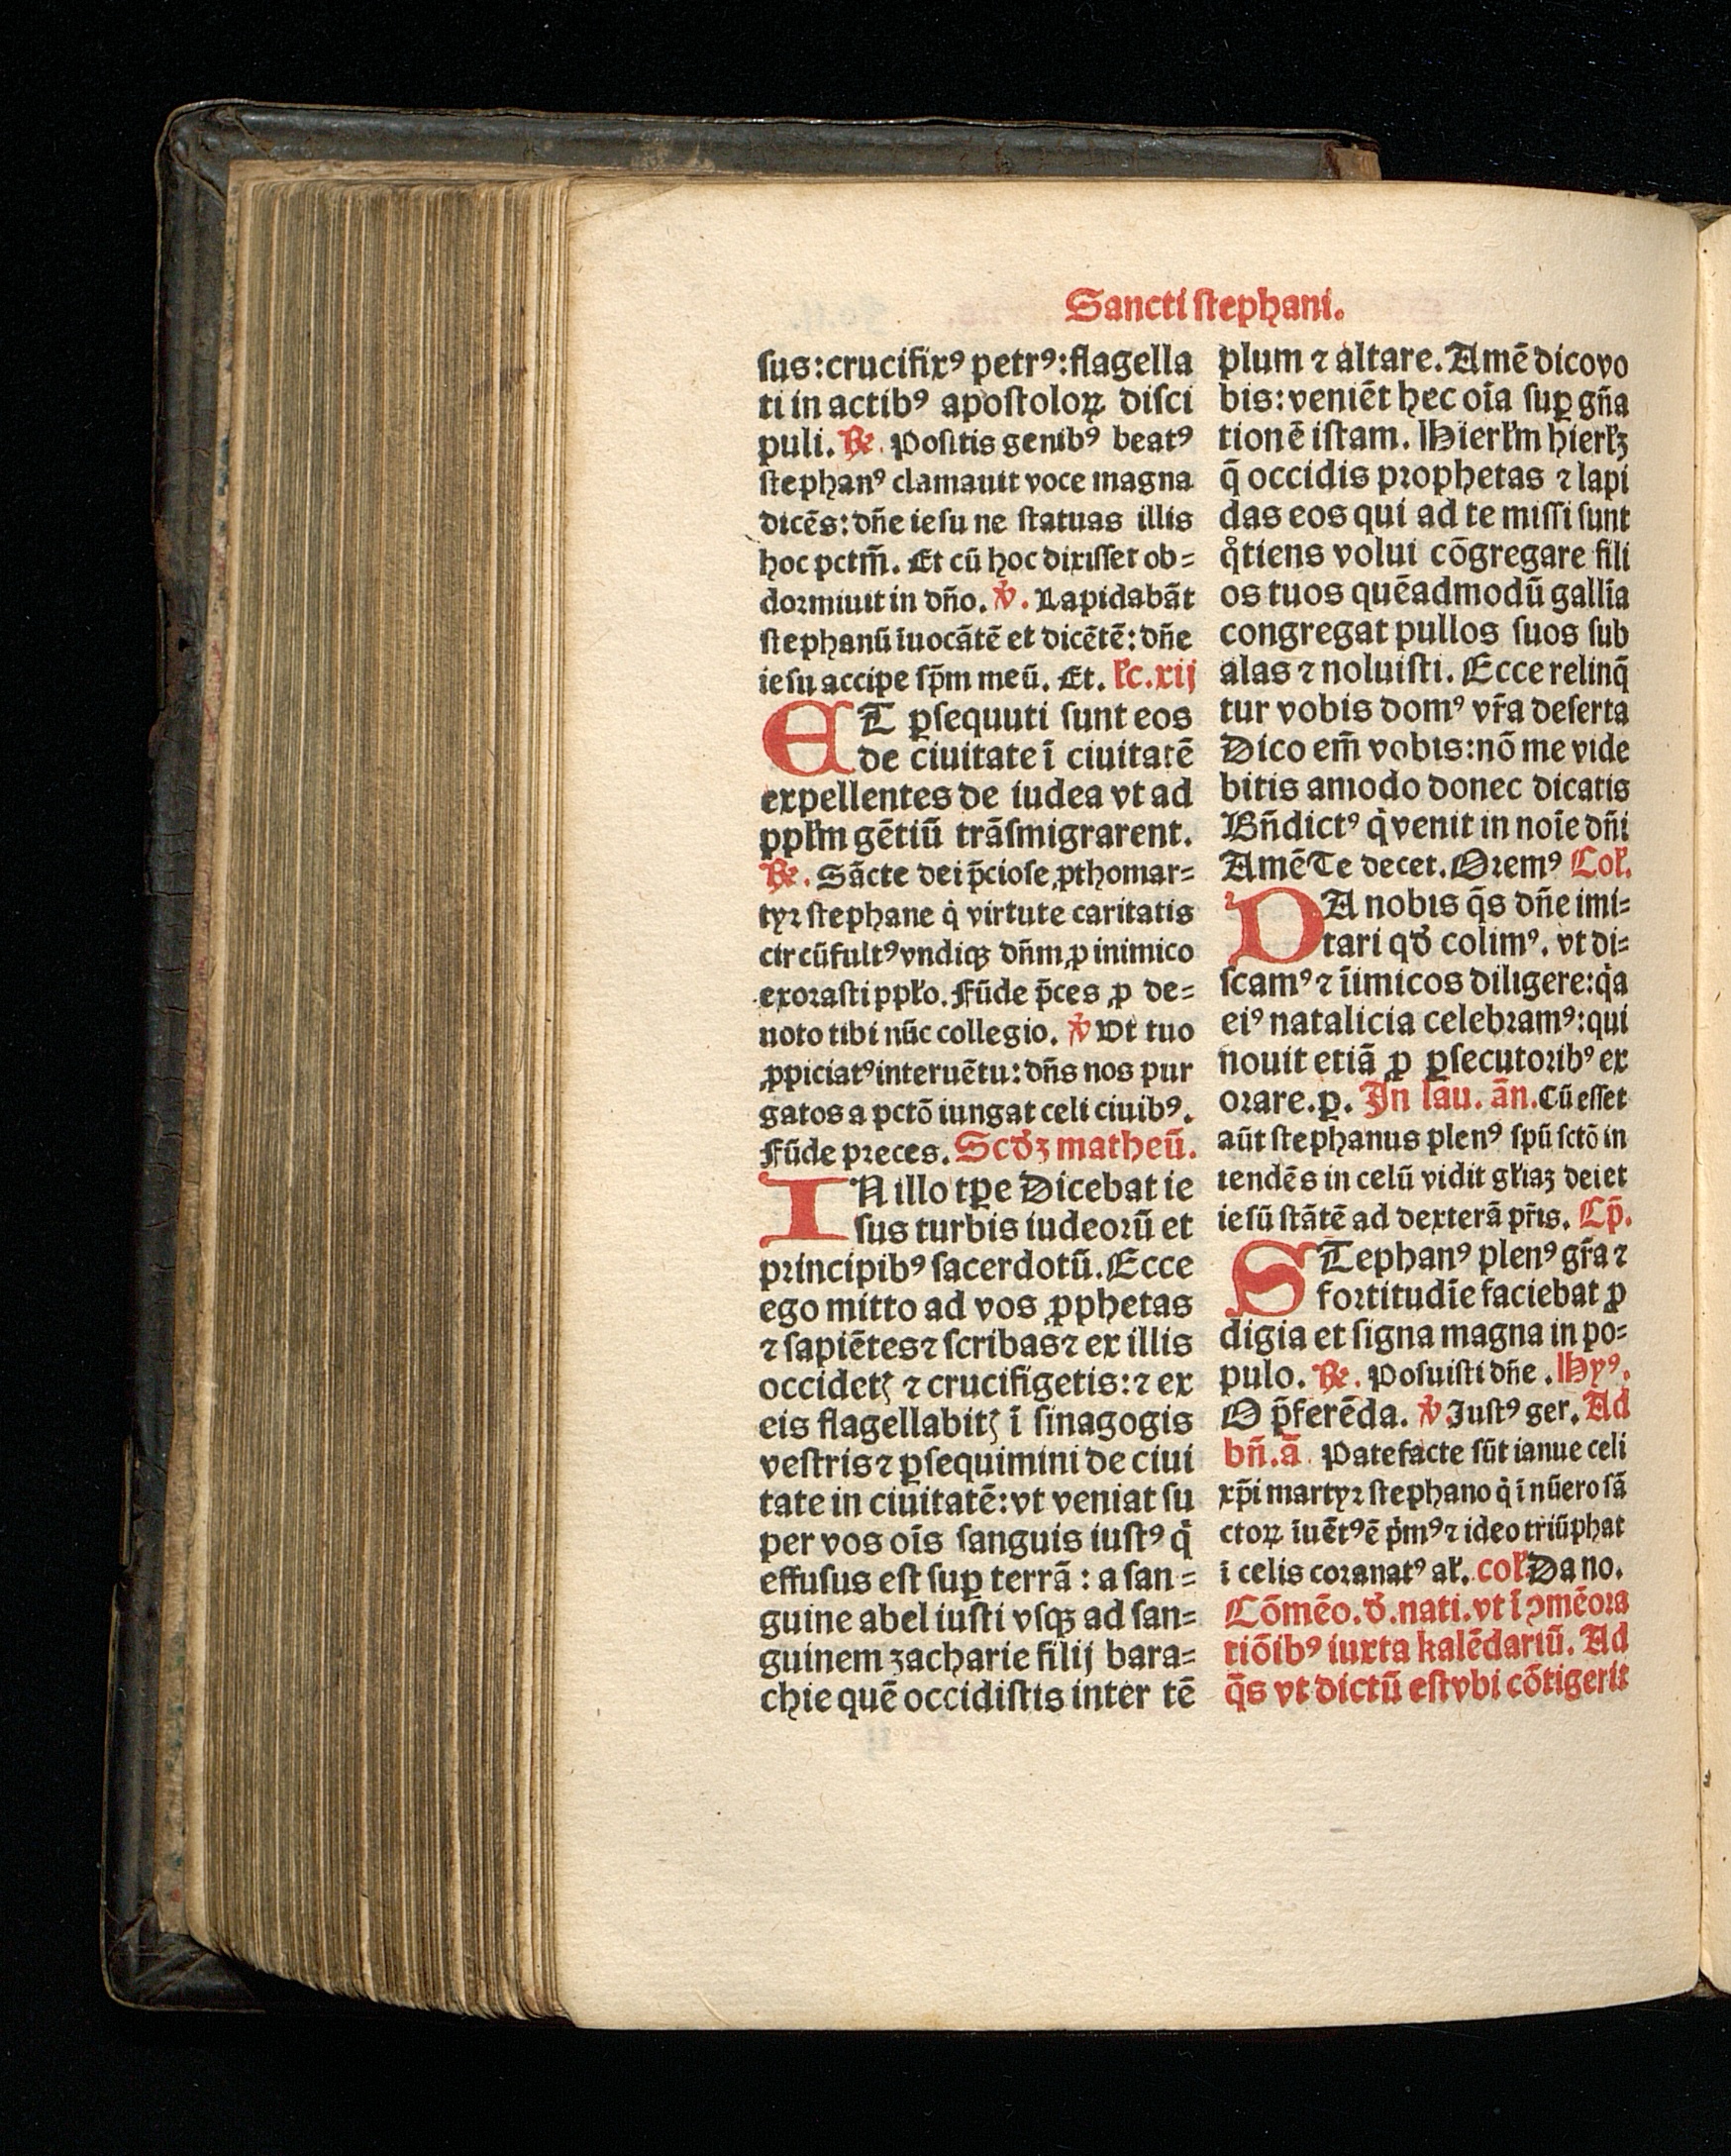 Sancti ſtephani.
ſus:crucifixꝰ petrꝰ:flagella
ti in actibꝰ apoſtoloꝝ diſci
puli. ℟. Poſitis genibꝰ beatꝰ
ſtephanꝰ clamauit voce magna
dicēs: dn̄e ieſu ne ſtatuas illis
hoc pctm̄. Et cū hoc dixiſſet ob-
doꝛmiuit in dn̄o. ℣. Lapidabāt
ſtephanū īuocātē et dicētē: dn̄e
ieſu accipe ſp̄m meū. Et. łc.xij
ET ꝑſequuti ſunt eos
de ciuitate ī ciuitatē
expellentes de iudea vt ad
ppłm gētiū trāſmigrarent.
℟. Sācte dei p̄cioſe ꝓthomar-
tyꝛ ſtephane qͥ virtute caritatis
circūfultꝰ vndiqꝫ dn̄m ꝓ inimico
exoꝛaſti ppło. Fūde p̄ces ꝓ de-
uoto tibi nūc collegio. ℣ Vt tuo
ꝓpiciatꝰ interuētu: dn̄s nos pur
gatos a pctō iungat celi ciuibꝰ.
Fūde pꝛeces. Scd̓ꝫ matheū.
IN illo tꝑe Dicebat ie
ſus turbis iudeoꝛū et
pꝛincipibꝰ ſacerdotū. Ecce
ego mitto ad vos ꝓphetas
⁊ ſapiētes ⁊ ſcribas ⁊ ex illis
occidetꝭ ⁊ crucifigetis: ⁊ ex
eis flagellabitꝭ ī ſinagogis
veſtris ⁊ ꝑſequimini de ciui
tate in ciuitatē: vt veniat ſu
per vos oīs ſanguis iuſtꝰ qͥ
effuſus eſt ſuꝑ terrā : a ſan-
guine abel iuſti vſqꝫ ad ſan-
guinem zacharie filij bara-
chie quē occidiſtis inter tē
plum ⁊ altare. Amē dico vo
bis: veniēt hec oīa ſuꝑ gn̄a
tionē iſtam. Hierłm hierłꝫ
q̄ occidis pꝛophetas ⁊ lapi
das eos qui ad te miſſi ſunt
qͦtiens volui cōgregare fili
os tuos quēadmodū gallīa
congregat pullos ſuos ſub
alas ⁊ noluiſti. Ecce relinq̄
tur vobis domꝰ vr̄a deſerta
Dico em̄ vobis: nō me vide
bitis amodo donec dicatis
Bn̄dictꝰ qͥ venit in noīe dn̄i
Amē Te decet. Oꝛemꝰ Coł.
DA nobis q̄s dn̄e imi-
tari qd̓ colimꝰ. vt di-
ſcamꝰ ⁊ īimicos diligere: qͣa
eiꝰ natalicia celebꝛamꝰ: qui
nouit etiā ꝓ ꝑſecutoꝛibꝰ ex
oꝛare. ꝑ. In lau. ān. Cū eſſet
aūt ſtephanus plenꝰ ſpū ſctō in
tendēs in celū vidit głiaꝫ dei et
ieſū ſtātē ad dexterā pr̄is. Cp̄.
STephanꝰ plenꝰ gr̄a ⁊
foꝛtitudīe faciebat ꝓ
digia et ſigna magna in po-
pulo. ℟. Poſuiſti dn̄e. Hyꝰ.
O p̄ferēda. ℣ Juſtꝰ ger. Ad
bn̄.ā. Patefacte ſūt ianue celi
xp̄i martyꝛ ſtephano qͥ ī nūero ſā
ctoꝝ īuētꝰ ē pͥmꝰ ⁊ ideo triūphat
ī celis coꝛanatꝰ ał. coł. Da no.
Cōmēo. d̓. nati. vt ī ꝯmēoꝛa
tiōibꝰ iuxta kalēdariū. Ad
q̄s vt dictū eſt vbi cōtigerit